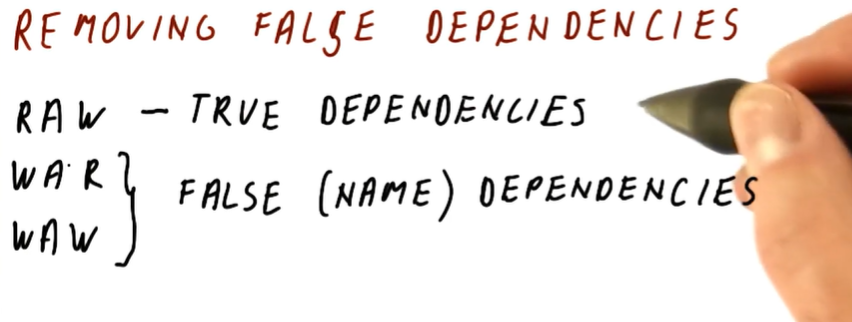 REMOVING FALSE DEPENDENCIES
RAW — TRUE DEPENDENCIES
WAR } FALSE (NAME) DEPENDENCIES
WAW